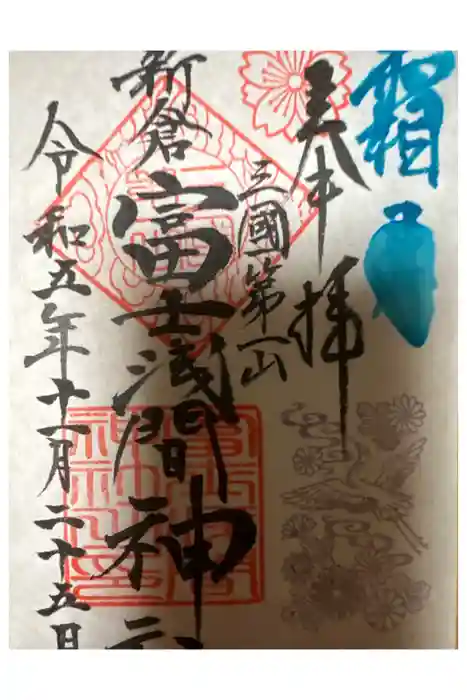 霜
奉拝
三國第一山
新倉富士浅間神社
令和五年十一月二十五日